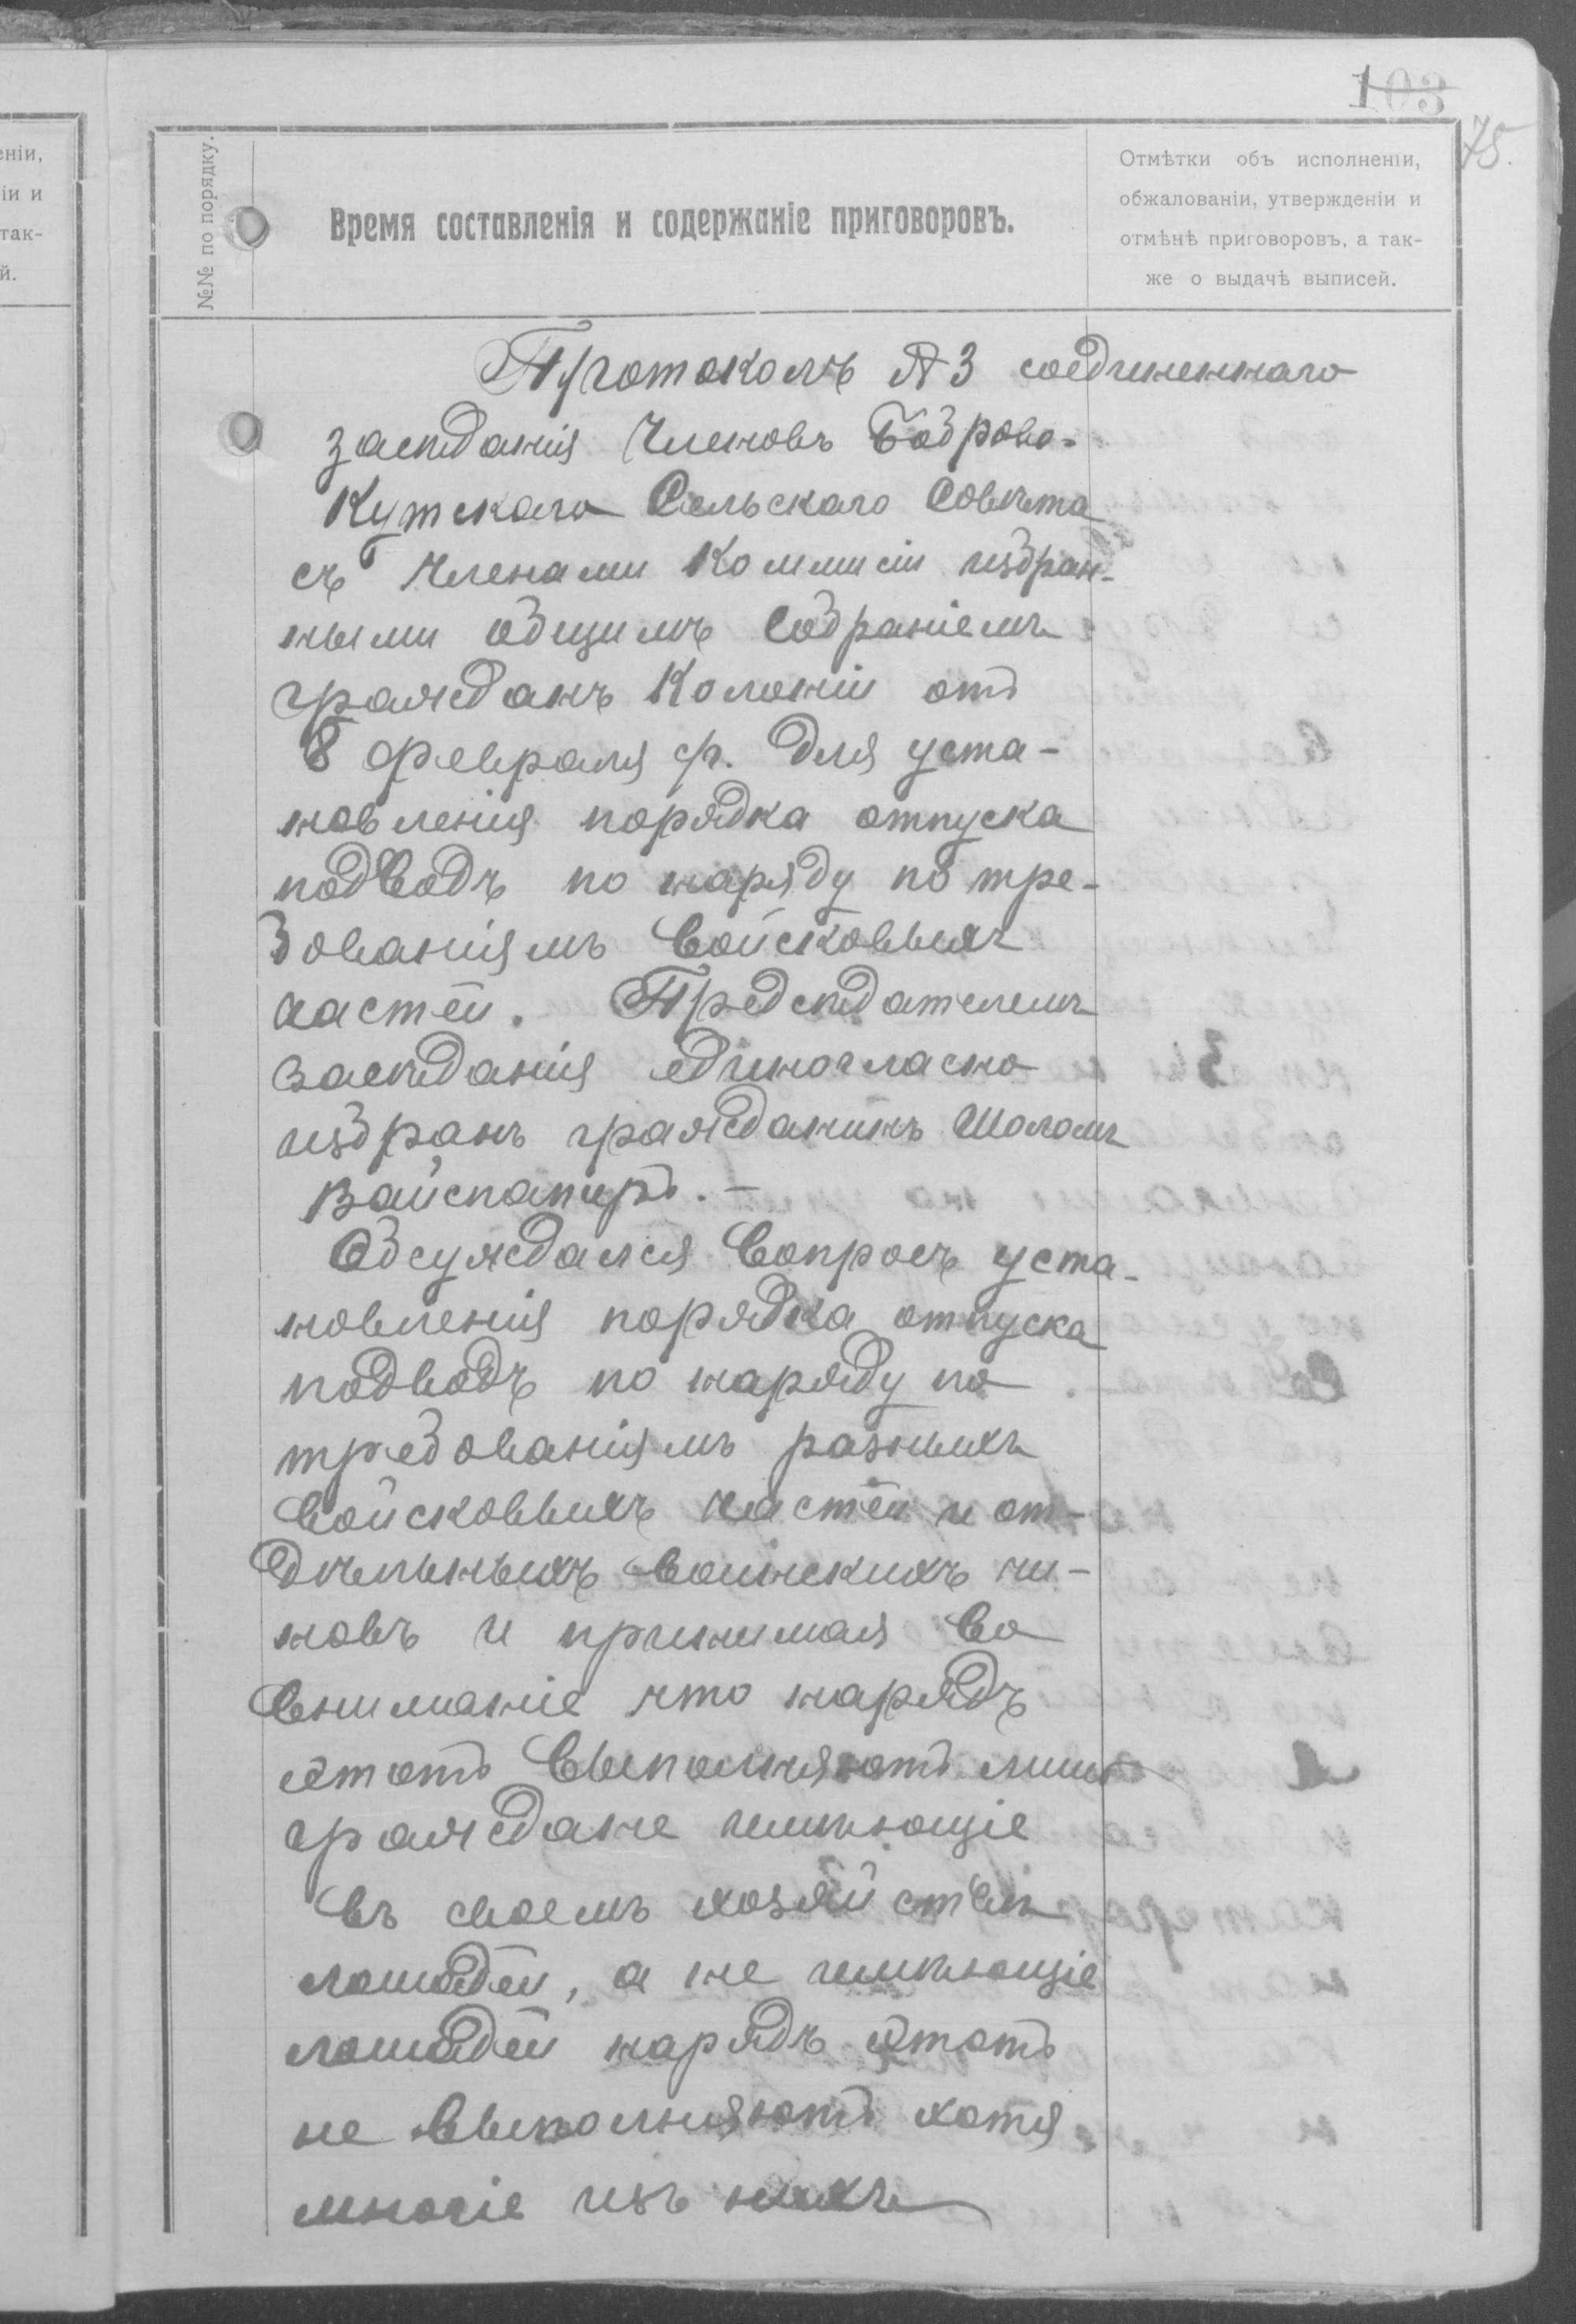 103
75.
еніи,
іи и
так-
й.
№№ по порядку.
Время составленія и содержаніе приговоровъ.
Отмѣтки объ исполненіи,
обжалованіи, утвержденіи и
отмѣнѣ приговоровъ, а так-
же о выдачѣ выписей.
Протоколъ № 3 соединеннаго
засѣданія Членовъ Боброво-
Кутскаго Сельскаго Совѣта
съ Членами Коммисіи избран-
ными общимъ Собраніемъ
гражданъ Колоніи отъ
8 февраля с/г. для уста-
новленія порядка отпуска
подводъ по наряду по тре-
бованіямъ Войсковыхъ
частей. Предсѣдателемъ
засѣданія единогласно
избранъ гражданинъ Шоломъ
Вайспапиръ. —
Обсуждался Вопросъ уста-
новленія порядка отпуска
подводъ по наряду по
требованіямъ разныхъ
Войсковыхъ частей и от-
дѣльныхъ воинскихъ чи-
новъ и принимая Во
Вниманіе что нарядъ
этотъ Выполняютъ лишь
граждане имѣющіе
въ своемъ хозяйствѣ
лошадей, а не имѣющіе
лошадей нарядъ этотъ
не Выполняютъ хотя
многіе изъ нихъ